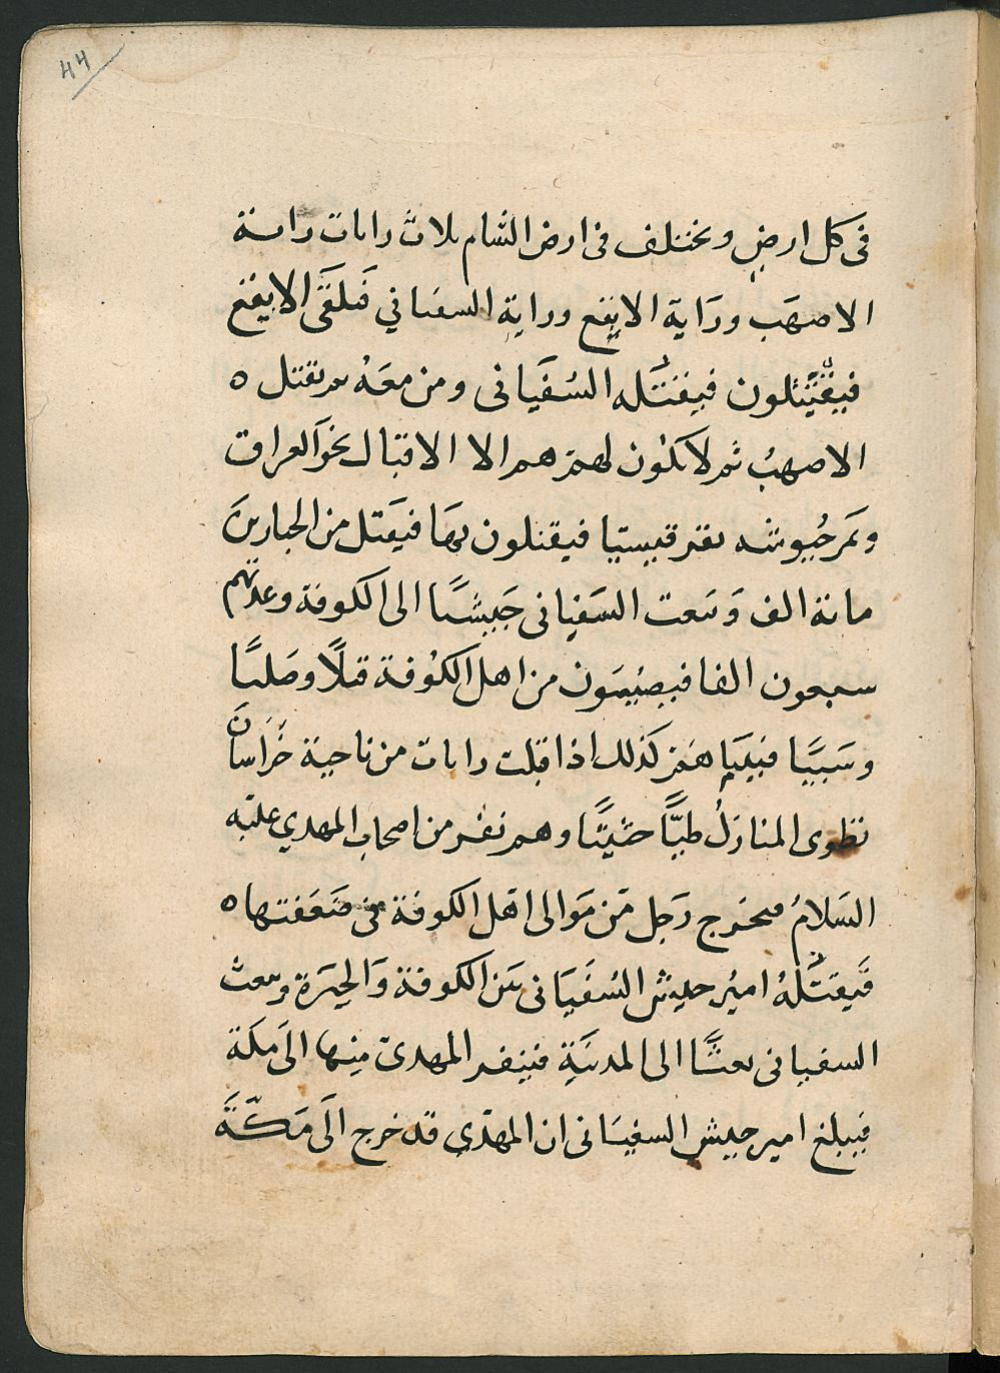 44
فى كل ارض و يختلف فى ارض الشام ثلاث رايات راية
الاصهَب ورَاية الابقع وراية السفيانى فيلقَى الابقع
فيقتتلون فيقتله السُفيَانى ومن معَهُ ثم يقتل ه
الاصهبُ ثم لا يكُون لهم هم الا الاقبال نحوَ العراق
ويَمر جُيوشه بقرقيسيا فيقتلون بهَا فيَقتل من الجبارينَ
مائة الف وَيَبعث السَفيانى جَيشًا الى الكوفة وعدتهم
سبعون الفا فيصيبُون من اهل الكوُفة قتلًا وصَلبًا
وسَبيًا فبيَنا هم كذلك اذا اقبلت رايات من ناحية خُرَاسانَ
تطوى المنازلُ طيًّا حثيثًا وهم نفر من اصحاب المهدي عليه
السَلامُ ويخرج رَجل مَن مَوالى اهَل الكوفة فى ضَعَفتها ه
فَيقتلهُ اميُر جيش السُفيَانى بين الكوفة وَالحيَرة ويبعث
السفيانى بعثًا الى المدينَةِ فينفر المهدىّ منها الىَ مكَة
فيبلغ امير جيش السفيَانى ان المهدّي قد خرج الَى مَكّةَ